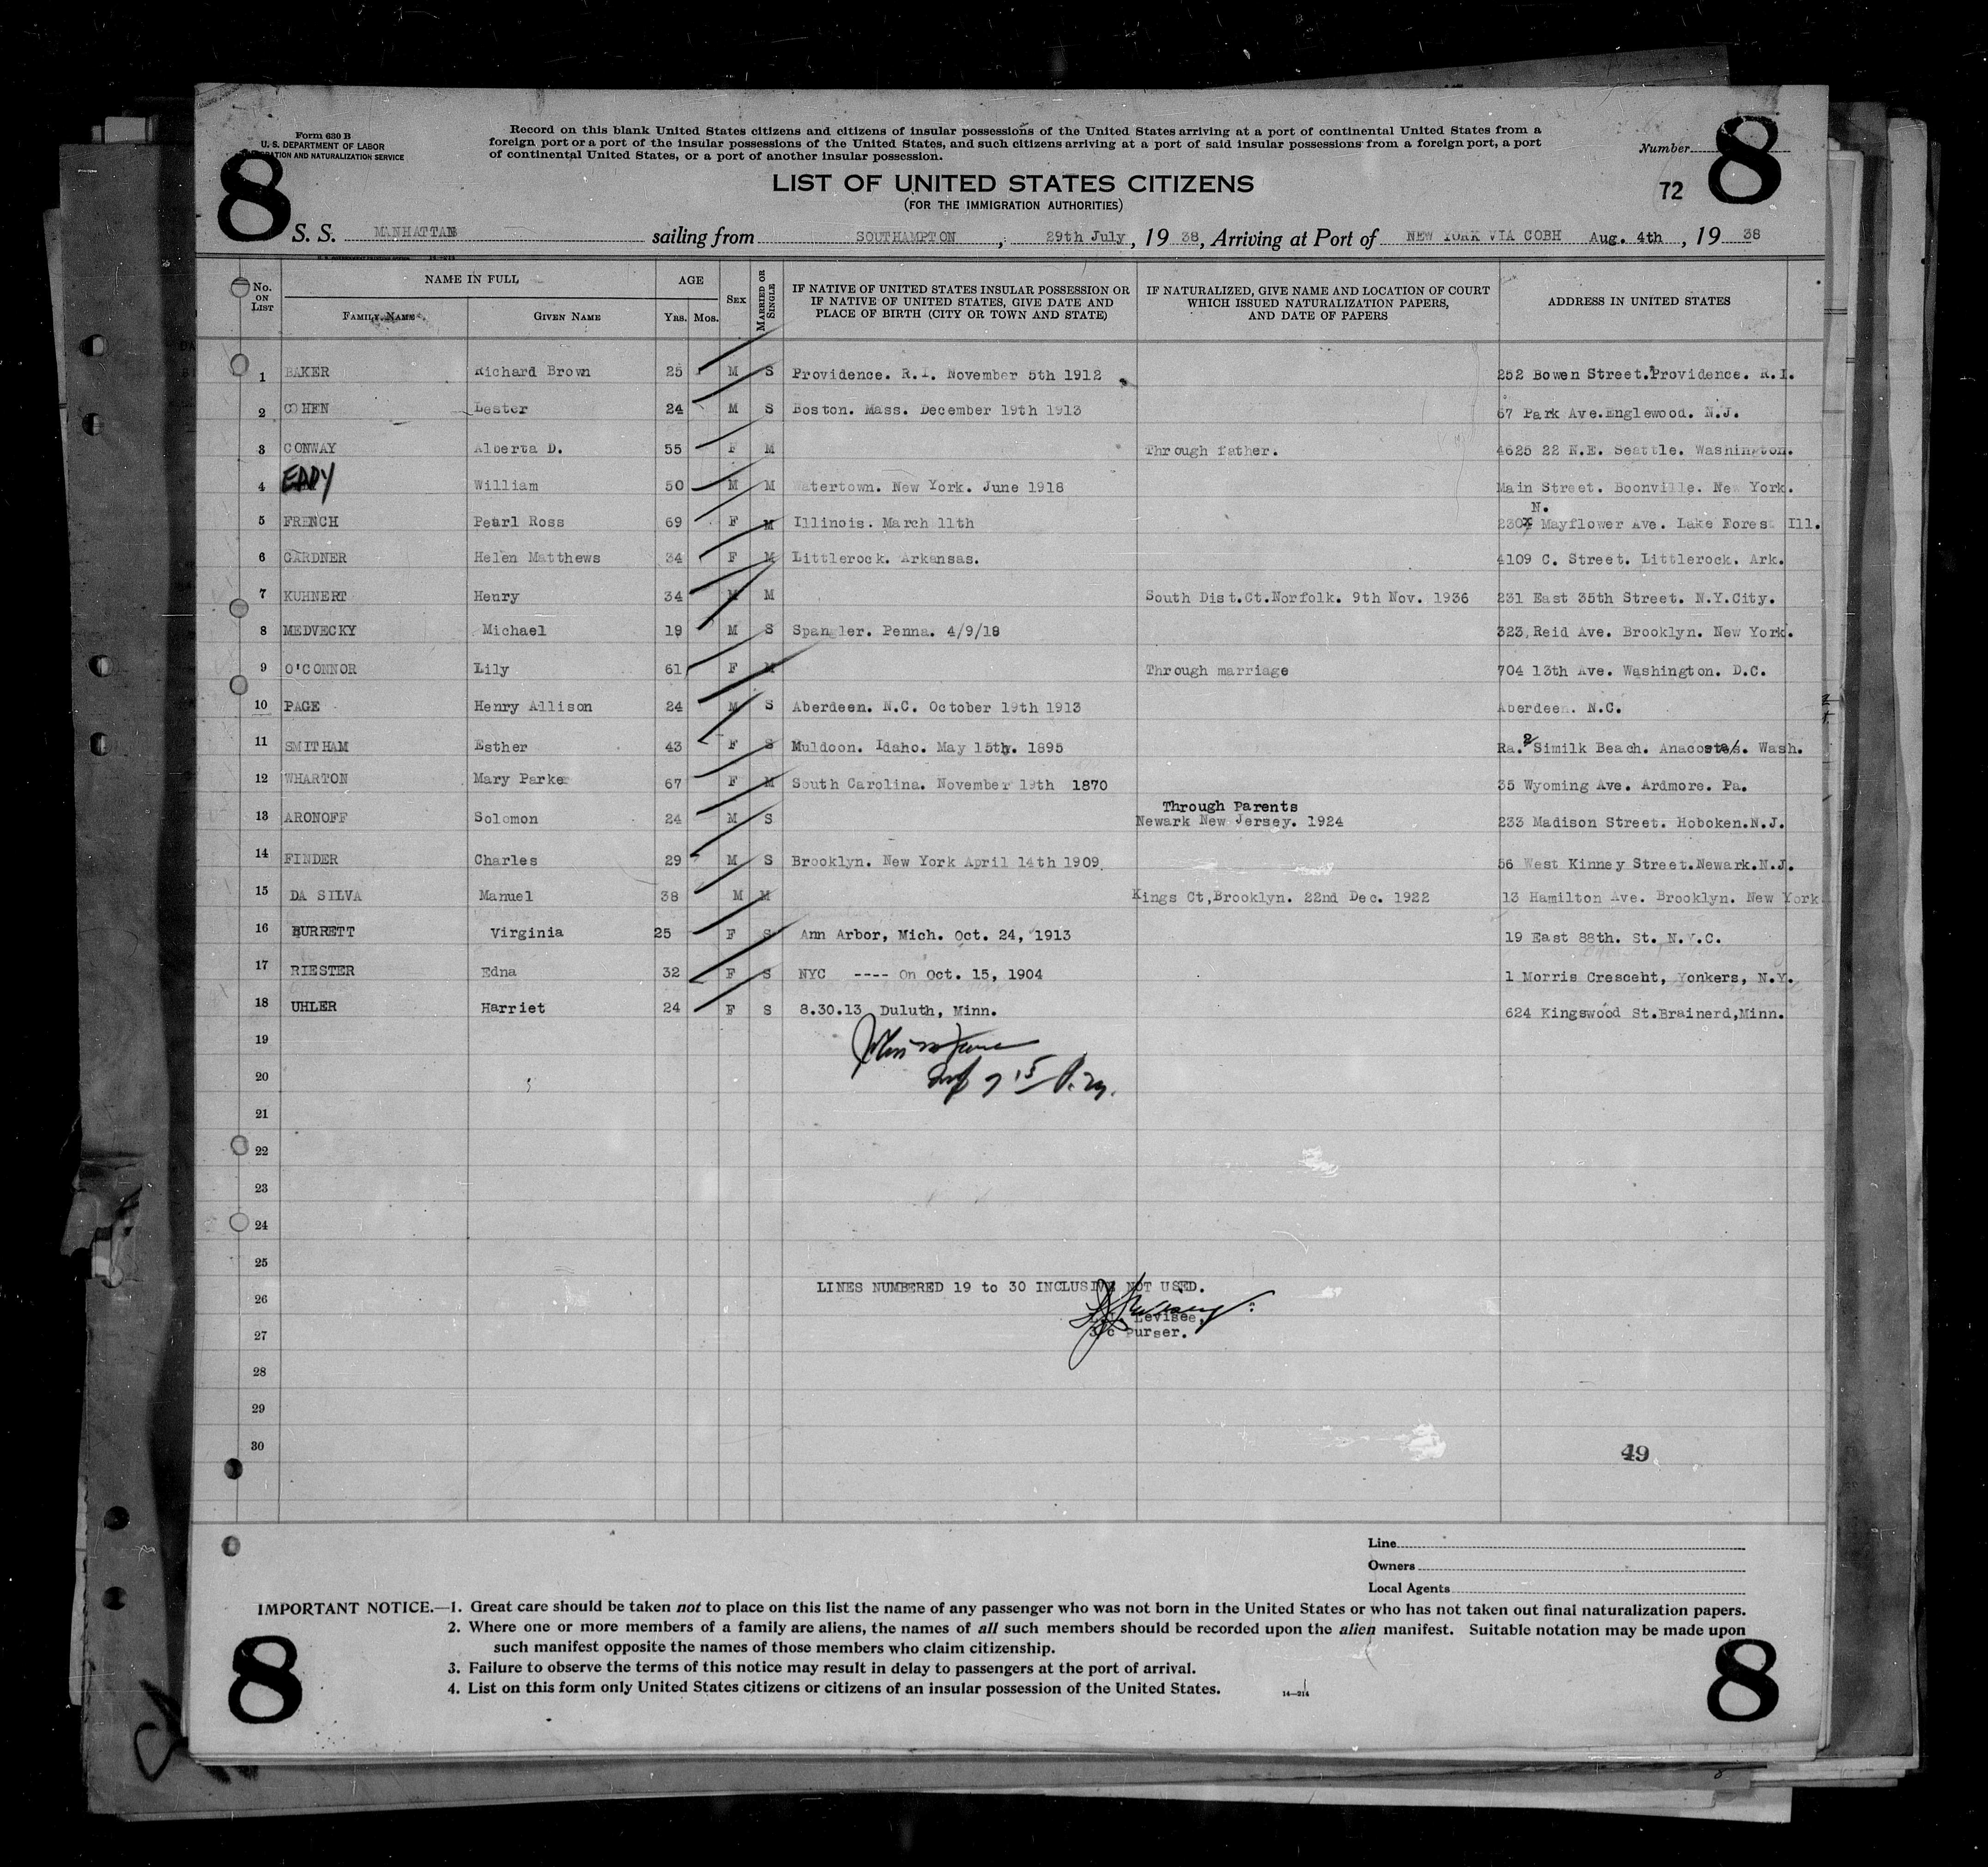 Form 630 B
U. S. DEPARTMENT OF LABOR
ATION AND NATURALIZATION SERVICE
Record on this blank United States citizens and citizens of insular possessions of the United States arriving at a port of continental United States from a
foreign port or a port of the insular possessions of the United States, and such citizens arriving at a port of said insular possessions from a foreign port, a port
of continental United States, or a port of another insular possession.
Number
8
8
LIST OF UNITED STATES CITIZENS
(FOR THE IMMIGRATION AUTHORITIES)
72
S. S. MANHATTAN sailing from SOUTHAMPTON, 29th July, 19 38, Arriving at Port of NEW YORK VIA COBH Aug. 4th, 19 38
No. ON LIST
NAME IN FULL
FAMILY NAME
GIVEN NAME
AGE
YRS. MOS.
SEX
MARRIED OR SINGLE
IF NATIVE OF UNITED STATES INSULAR POSSESSION OR
IF NATIVE OF UNITED STATES, GIVE DATE AND
PLACE OF BIRTH (CITY OR TOWN AND STATE)
IF NATURALIZED, GIVE NAME AND LOCATION OF COURT
WHICH ISSUED NATURALIZATION PAPERS,
AND DATE OF PAPERS
ADDRESS IN UNITED STATES
1 BAKER Richard Brown 25 M S Providence. R.I. November 5th 1912 252 Bowen Street. Providence. R.I.
2 COHEN Lester 24 M S Boston. Mass. December 19th 1913 67 Park Ave.Englewood. N.J.
3 CONWAY Alberta D. 55 F M Through father. 4625 22 N.E. Seattle. Washington.
4 EDDY William 50 M M Watertown. New York. June 1918 Main Street. Boonville. New York.
N.
5 FRENCH Pearl Ross 69 F M Illinois. March 11th 230 Mayflower Ave. Lake Forest Ill.
6 GARDNER Helen Matthews 34 F M Littlerock. Arkansas. 4109 C. Street. Littlerock. Ark.
7 KUHNERT Henry 34 M M South Dist.Ct.Norfolk. 9th Nov. 1936 231 East 35th Street. N.Y.City.
8 MEDVECKY Michael 19 M S Spangler. Penna. 4/9/18 323 Reid Ave. Brooklyn. New York.
9 O'CONNOR Lily 61 F M Through marriage 704 13th Ave. Washington. D.C.
10 PAGE Henry Allison 24 M S Aberdeen. N.C. October 19th 1913 Aberdeen. N.C.
11 SMITHAM Esther 43 F S Muldoon. Idaho. May 15th. 1895 Ra. 2 Similk Beach. Anacostes. Wash.
12 WHARTON Mary Parke 67 F M South Carolina. November 19th 1870 35 Wyoming Ave. Ardmore. Pa.
Through Parents
13 ARONOFF Solomon 24 M S Newark New Jersey. 1924 233 Madison Street. Hoboken.N.J.
14 FINDER Charles 29 M S Brooklyn. New York April 14th 1909. 56 West Kinney Street.Newark.N.J.
15 DA SILVA Manuel 38 M M Kings Ct,Brooklyn. 22nd Dec. 1922 13 Hamilton Ave. Brooklyn. New York
16 BURRETT Virginia 25 F S Ann Arbor, Mich. Oct. 24, 1913 19 East 88th. St. N.Y.C.
17 RIESTER Edna 32 F S NYC ---- On Oct. 15, 1904 1 Morris Crescent, Yonkers, N.Y.
18 UHLER Harriet 24 F S 8.30.13 Duluth, Minn. 624 Kingswood St.Brainerd,Minn.
19
20
21
22
23
24
25
LINES NUMBERED 19 to 30 INCLUSIVE NOT USED.
26
Levisee,
27
3/c Purser.
28
29
30
49
Line
Owners
Local Agents
IMPORTANT NOTICE.—1. Great care should be taken not to place on this list the name of any passenger who was not born in the United States or who has not taken out final naturalization papers.
2. Where one or more members of a family are aliens, the names of all such members should be recorded upon the alien manifest. Suitable notation may be made upon
such manifest opposite the names of those members who claim citizenship.
3. Failure to observe the terms of this notice may result in delay to passengers at the port of arrival.
4. List on this form only United States citizens or citizens of an insular possession of the United States.
14—214
8
8